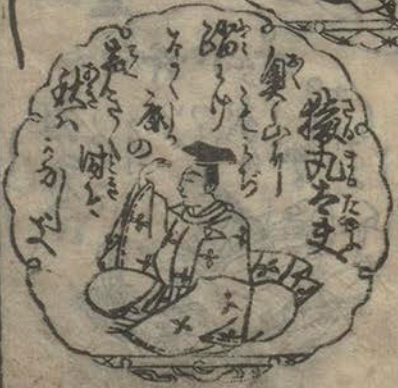 猿丸太夫
奥山に
もみぢ
踏わけ
なく鹿の
声きく
時ぞ
秋は
かなしき